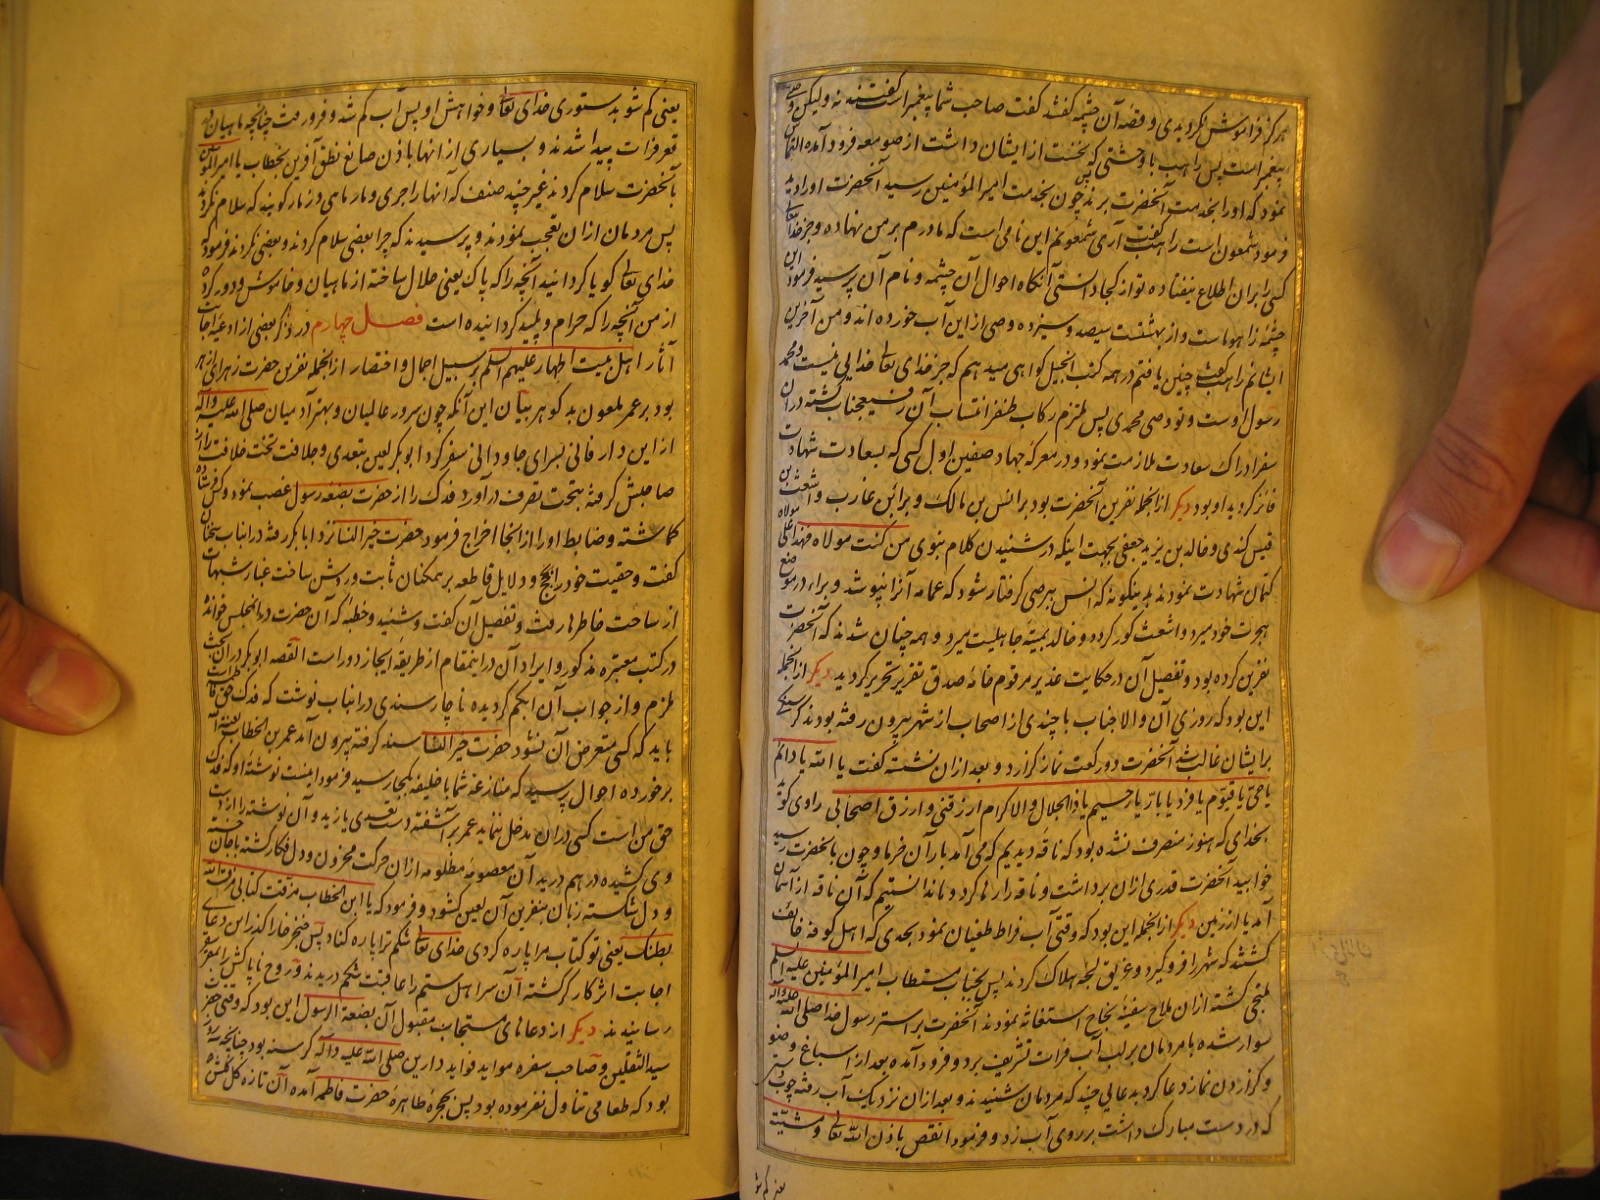 هرگز فراموش نکردیدی و قصهٔ آن چشمه گفتند گفت صاحب شما پیغمبر است گفتند نه ولیکن وصی
پیغمبر است پس راهب با وحشتی که نخست از ایشان داشت از صومعه فرود آمده التماس
نمود که او را بخدمت آنحضرت برند چون بخدمت امیرالمؤمنین رسید آنحضرت او را دید
فرمود شمعون است راهب گفت آری شمعونم این نامی است که مادرم بر من نهاده و جز خدایتعالی
کسی را بران اطلاع نیفتاده تو از کجا دانستی آنگاه احوال آن چشمه و نام آن پرسید فرمود این
چشمه زاهوماست و از بهشتست سیصد و سیزده وصی از این آب خورده‌اند و من آخرین
ایشانم راهب گفت چنین یافتم در همه کتب انجیل گواهی میدهم که جز خدای تعالی خدایی نیست و محمد
رسول اوست و تو وصی محمدی پس ملتزم رکاب ظفر انتساب آن رفیع جناب گشته دران
سفر ادراک سعادت ملازمت نمود و در معرکه جهاد صفین اول کسی که بسعادت شهادت
فائز گردید او بود دیگر ازانجمله نفرین آنحضرت بود بر انس بن مالک و براء بن عازب و اشعث بن
قیس کندی و خالد بن یزید جعفی بجهت اینکه در شنیدن کلام نبوی من کنت مولاه فهذا علی مولاه
کتمان شهادت نمودند بدینگونه که انس ببرصی گرفتار شود که عمامه آنرا نپوشد و براء در موضع
هجرت خود میرد و اشعث کور گردد و خالد بمیتهٔ جاهلیت میرد و همه چنان شدند که آنحضرت
نفرین کرده بود و تفصیل آن در حکایت غدیر مرقوم خامهٔ صدق تقریر تحریر گردید دیگر ازانجمله
این بود که روزی آن والاجناب با چندی از اصحاب از شهر بیرون رفته بودند گرسنگی
بر ایشان غالب شد آنحضرت دو رکعت نماز گزارد و بعد ازان نشسته گفت یا الله یا دائم
یا حی یا قیوم یا فرد یا بار یا رحیم یا ذا الجلال والاکرام ارزقنی وارزق اصحابی راوی گوید
بخدای که هنوز منصرف نشده بود که ناقه دیدیم که می‌آمد بار آن خرما و چون بآنحضرت رسید
خوابید آنحضرت قدری ازان برداشت و ناقه را رها کرد و ما ندانستیم که آن ناقه از آسمان
آمد یا از زمین دیگر ازانجمله این بود که وقتی آب فرات طغیان نمود بحدی که اهل کوفه خائف
گشتند که شهر را فرو گیرد و غریق لجه هلاک گردند پس بجناب مستطاب امیرالمؤمنین علیه السلم
ملتجی گشته ازان ملاح سفینهٔ نجاح استغاثه نمودند آنحضرت بر استر رسول خدا صلی الله علیه وآله
سوار شده با مردمان بر لب آب فرات تشریف برد و فرود آمده بعد از اسباغ وضو
و گزاردن نماز دعا کرد بدعائی چند که مردمان شنیدند و بعد ازان نزدیک آب رفته چوب دستی
که در دست مبارک داشت بر روی آب زد و فرمود انقص باذن الله تعالی و مشیته
یعنی کم شو
یعنی کم شو بدستوری خدای تعالی و خواهش او پس آب کم شد و فرو رفت چنانچه ماهیان در
قعر فرات پیدا شدند و بسیاری از انها باذن صانع نطق آفرین بخطاب یا امیرالمؤمنین
بآنحضرت سلام کردند غیر چند صنف که آنها را جری و مارماهی و زمار گویند که سلام نکردند
پس مردمان ازان تعجب نمودند و پرسیدند که چرا بعضی سلام کردند و بعضی نکردند فرمود که
خدای تعالی گویا گردانید آنچه را که پاک یعنی حلال ساخته از ماهیان و خاموش و دور کرده
از من آنچه را که حرام و پلید گردانیده است فصل چهارم در ذکر بعضی از ادعیهٔ اجابت
آثار اهل بیت اطهار علیهم السلم بر سبیل اجمال و اختصار ازانجمله نفرین حضرت زهرای ازهر
بود بر عمر ملعون بدگوهر بیان این آنکه چون سرور عالمیان و بهتر آدمیان صلی الله علیه وآله
از این دار فانی بسرای جاودانی سفر کرد ابوبکر لعین بتعدی و جلافت تخت خلافت را از
صاحبش گرفته بتحت تصرف درآورد فدک را از حضرت بضعه رسول غصب نمود و کس فرستاده
گماشته و ضابط او را از انجا اخراج فرمود حضرت خیرالنسا نزد ابابکر رفته در انباب سخنان
گفت و حقیت خود را بحجج و دلایل قاطعه بر همکنان ثابت و روشن ساخت غبار شبهات
از ساحت خاطرها رفت و تفصیل آن گفت و شنید و خطبهٔ که آن حضرت در انمجلس خوانده
در کتب معتبره مذکور و ایراد آن در اینمقام از طریقهٔ ایجاز دور است القصه ابوبکر در ان بحث
ملزم و از جواب آن ابکم گردیده ناچار سندی در انباب نوشت که فدک حق فاطمه است
باید که کسی متعرض آن نشود حضرت خیرالنسا سند گرفته بیرون آمد عمر بن الخطاب لعنه الله
برخورده احوال پرسید که منازعهٔ شما با خلیفه بکجا رسید فرمود اینست نوشتهٔ او که فدک
حق من است کسی دران مدخل ننماید عمر برآشفته دست تعدی یازید و آن نوشته را از دست
وی کشیده درهم درید آن معصومهٔ مظلومه ازان حرکت محزون و دل فکار گشته با جان خسته
و دل شکسته زبان بنفرین آن لعین گشود و فرمود که یا ابن الخطاب مزقت کتابی مزق الله
بطنک یعنی تو کتاب مرا پاره کردی خدای تعالی شکم ترا پاره کناد پس خنجر خارا گذر این دعای
اجابت اثر کارگر گشته آن سر اهل ستم را عاقبت شکم دریدند و روح ناپاکش را بمقر سقر
رسانیدند دیگر از دعاهای مستجاب مقبول آن بضعة الرسول این بود که وقتی حضرت
سیدالثقلین و صاحب سفره مواید فواید دارین صلی الله علیه وآله گرسنه بود چنانچه سه روز
بود که طعامی تناول نفرموده بود پس بحجره طاهرهٔ حضرت فاطمه آمده آن تازه گل گلشن